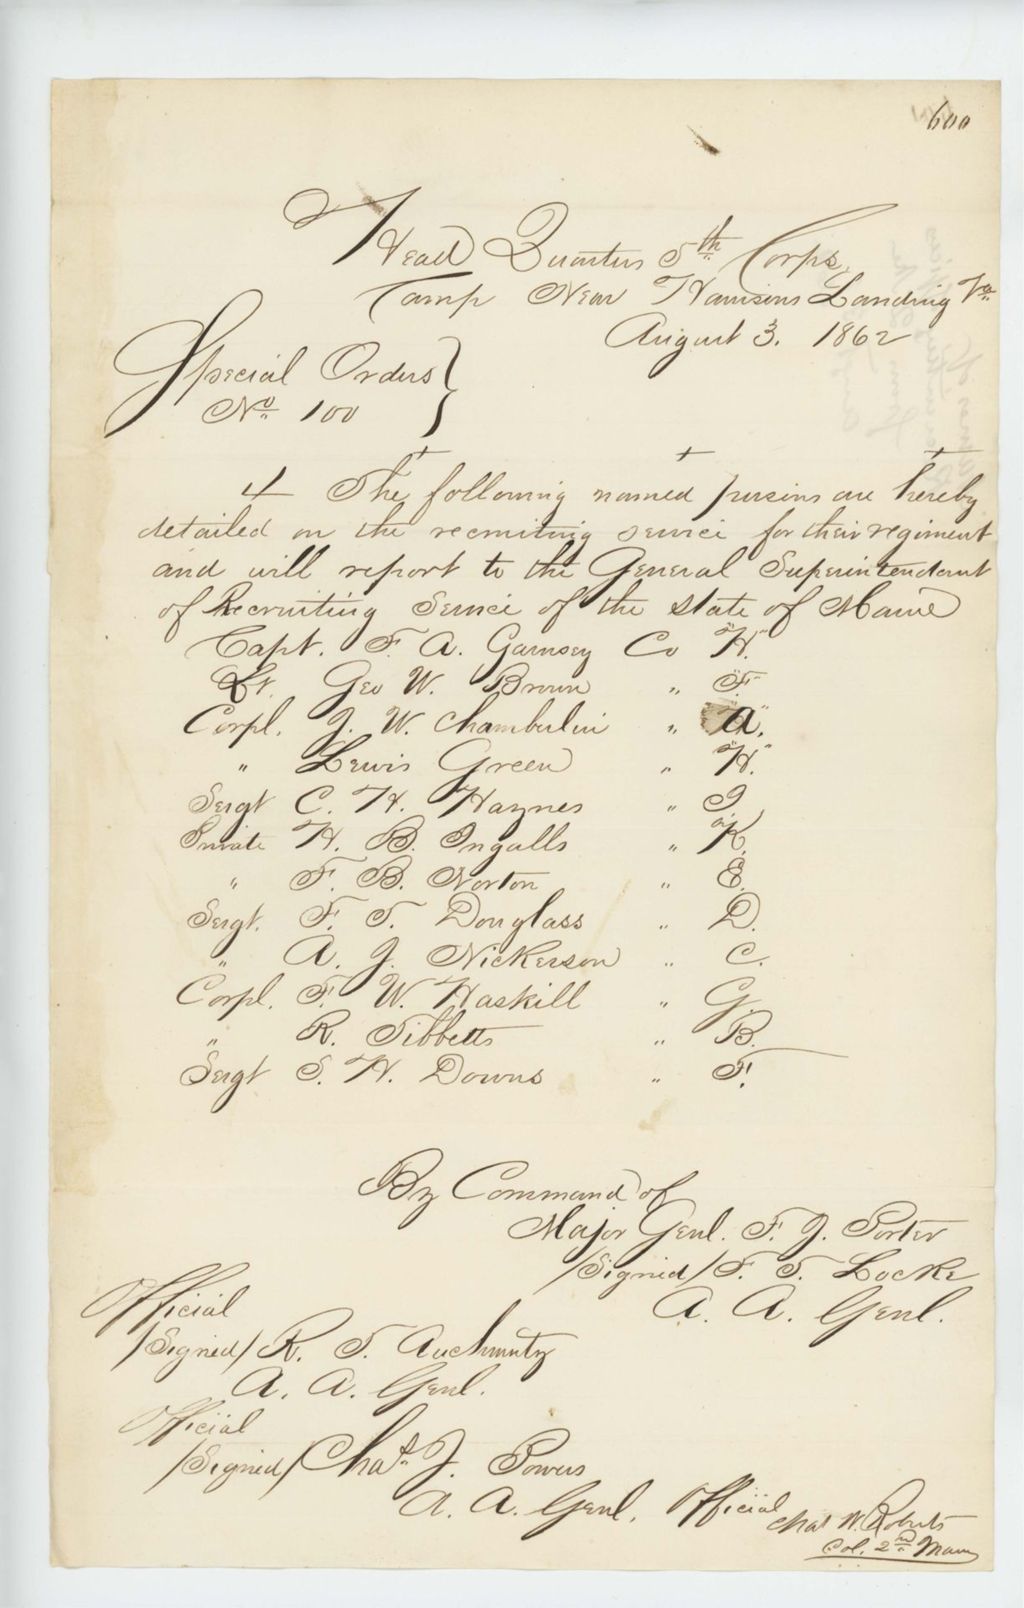 600
Head Quarters 5th Corps,
Camp Near Harrisons Landing Va.
August 3. 1862
Special Orders }
No. 100
4 The following named persons are hereby
detailed on the recruiting service for their regiment
and will report to the General Superintendant
of Recruiting Service of the state of Maine
Capt. F. A. Garnsey Co "H."
Lt. Geo W. Brown " "F."
Corpl. J. W. Chamberlin " "A."
" Lewis Green " "H."
Sergt C. H. Haynes " I.
Private H. B. Ingalls " "K.
" F. B. Norton " E.
Sergt. F. T. Douglass " D.
" A. J. Nickerson " C.
Corpl. F. W. Haskill " G.
" R. Tibbetts " B.
Sergt S. H. Downs " F.
By Command of
Major Genl. F. J. Porter
/Signed/ F. T. Locke
A. A. Genl.
Official
/Signed/ R. T. Auchmuty
A. A. Genl.
Official
/Signed/ Chas. J. Powers
A. A. Genl. Official
Chas W. Roberts
Col. 2nd Maine